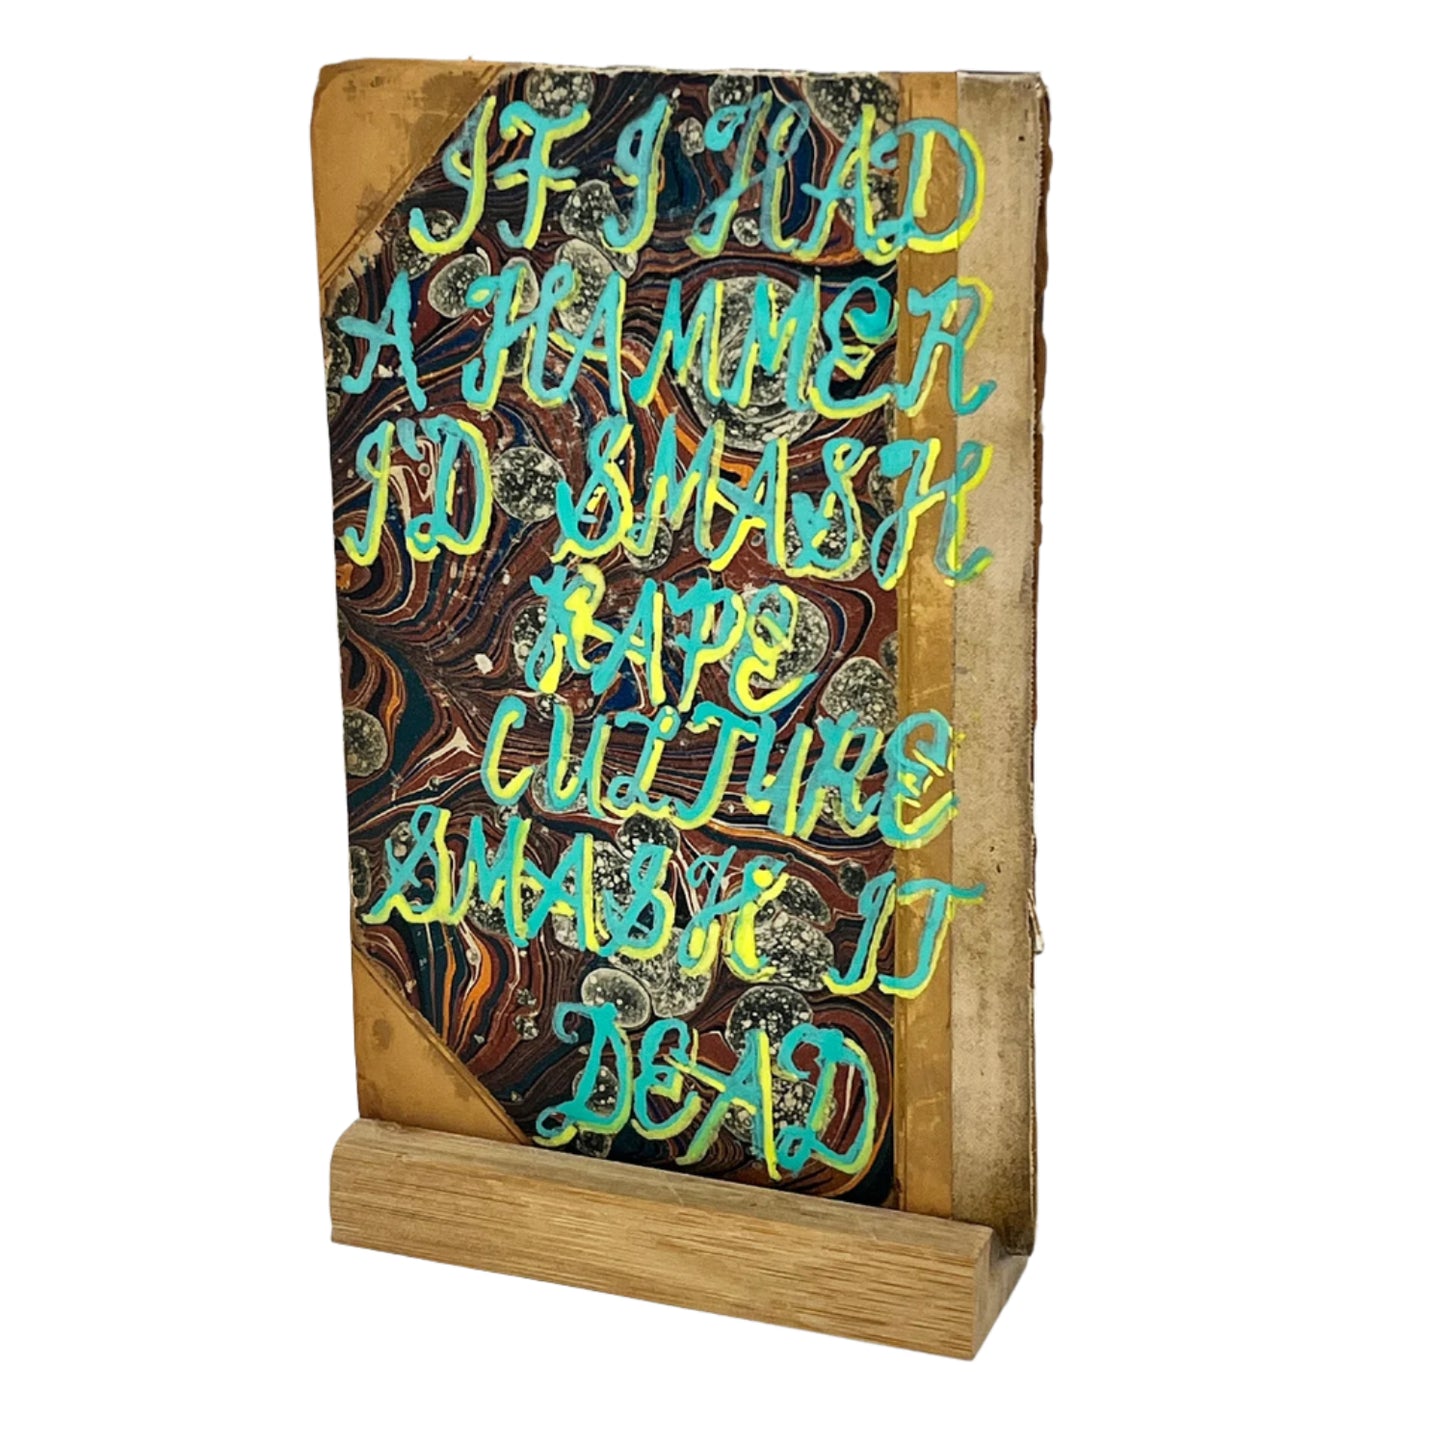 IF I HAD
A HAMMER
I'D SMASH
RAPE
CULTURE
SMASH IT
DEAD